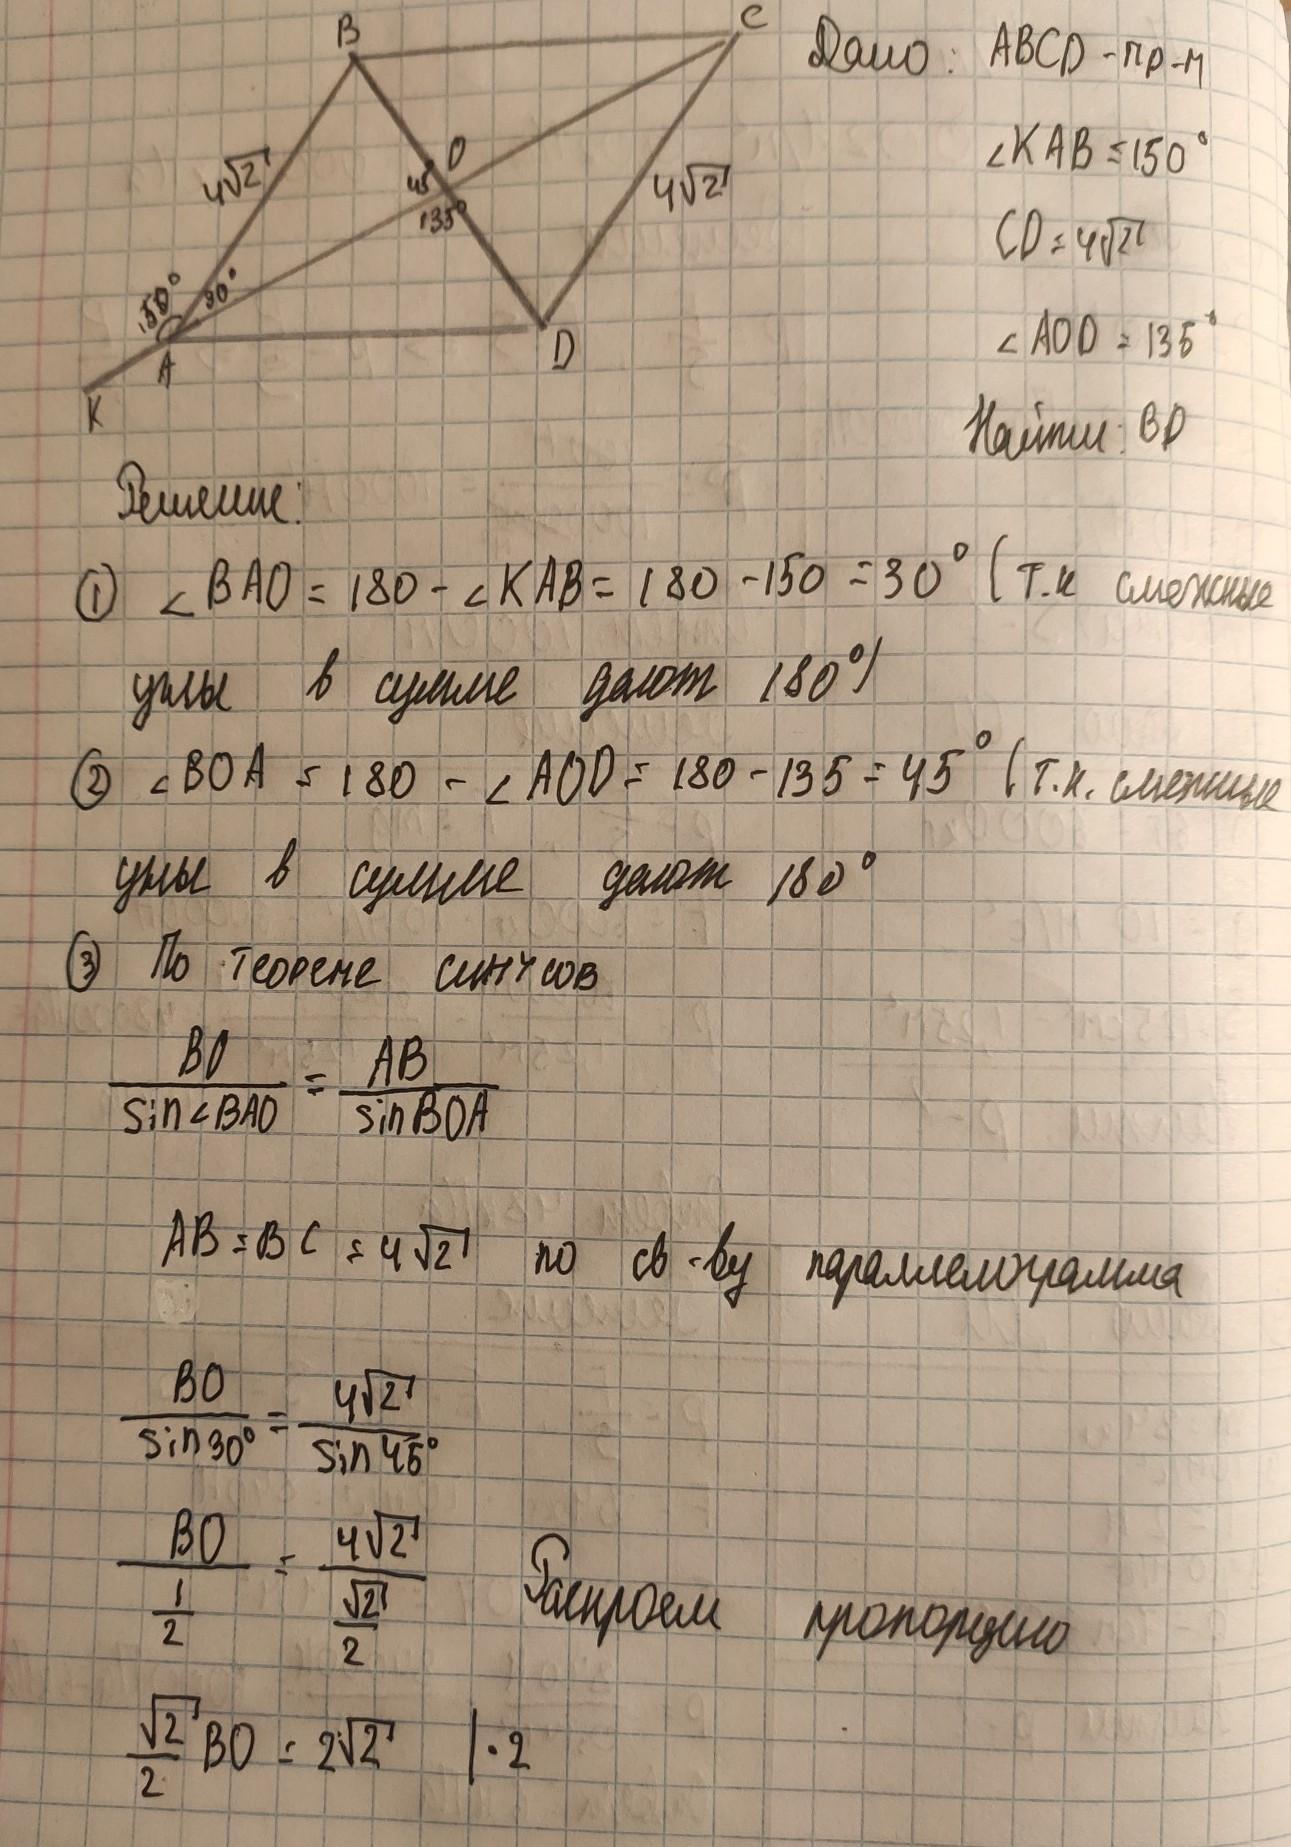 B
C
Дано: ABCD - пр-м
∠KAB = 150°
4√2
O
45
135°
4√2
CD = 4√2
150°
30°
∠AOD = 135°
A
D
K
Найти: BD
Решение:
① ∠BAO = 180 - ∠KAB = 180 - 150 = 30° (т.к смежные
углы в сумме дают 180°)
② ∠BOA = 180 - ∠AOD = 180 - 135 = 45° (т.к. смежные
углы в сумме дают 180°
③ По теореме синусов
BO/sin∠BAO = AB/sinBOA
AB = BC = 4√2 по св-ву параллелограмма
BO/sin30° = 4√2/sin45°
BO/(1/2) = 4√2/(√2/2) Раскроем пропорцию
√2/2 BO = 2√2 | · 2